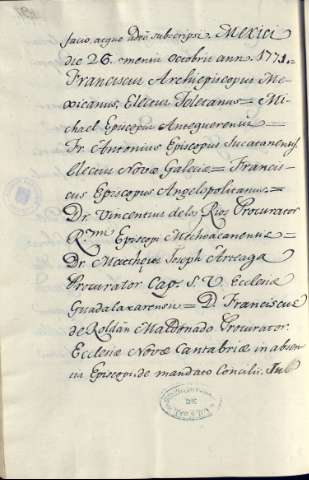 facio, atque adeo subscripsi. Mexici
die 26. mensis Octobris ann. 1771.=
Franciscus Archiepiscopus Me-
xicanus, Electus Toletanus = Mi-
chael Episcopus Antequerensis =
Fr. Antonius Episcopus Jucatanensis,
Electus Novæ Galeciæ = Francis-
cus Episcopus Angelopolitanus =
Dr. Vincentius de los Rios Procurator
R.mi Episcopi Mechoacanensis =
Dr. Mattheus Joseph Arteaga
Procurator Cap. S. V. Ecclesiæ
Guadalaxarensis = D. Franciscus
de Roldán Maldonado Procurator
Ecclesiæ Novæ Cantabriæ in absen
tia Episcopi, de mandato Concilii. Sub